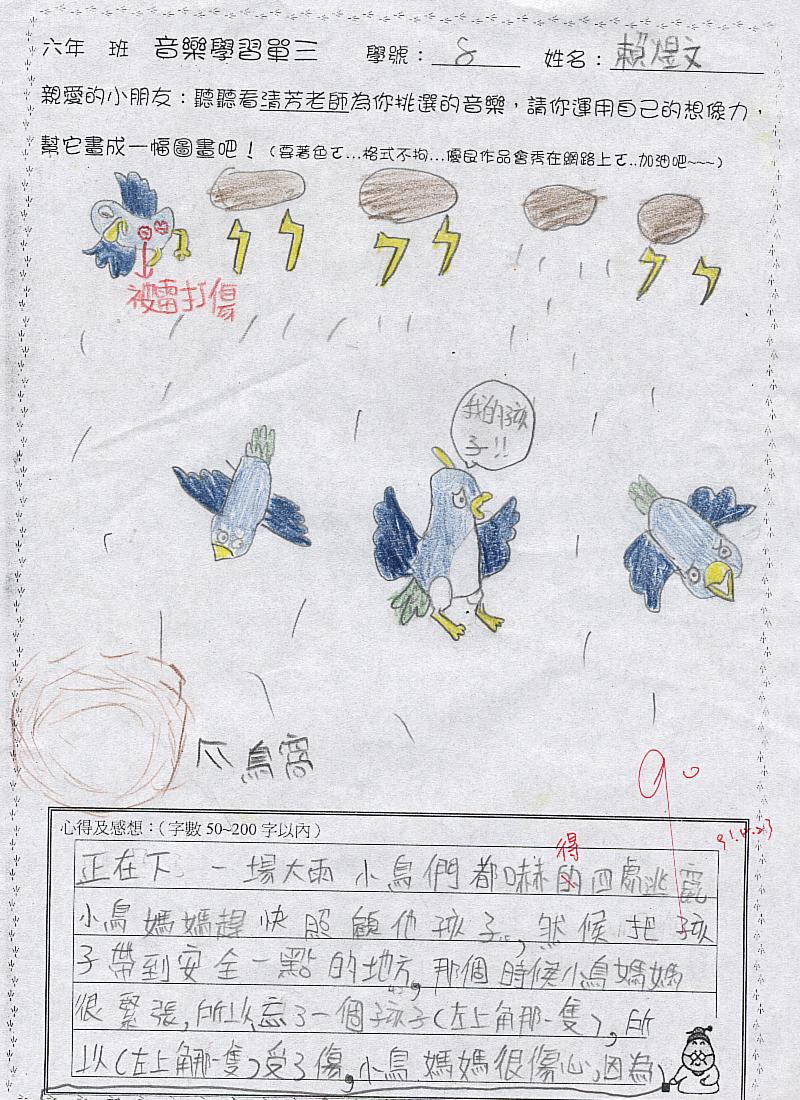 六年 班 音樂學習單三 學號：8 姓名：賴煜文
親愛的小朋友：聽聽看清芳老師為你挑選的音樂，請你運用自己的想像力，
幫它畫成一幅圖畫吧！（要著色ㄛ...格式不拘...優良作品會秀在網路上ㄛ..加油吧~~~）
被雷打傷
我的孩
子!!
鳥窩
90
心得及感想：（字數50~200字以內）
得
正在下 一場大雨 小鳥們都嚇的四處逃竄
小鳥媽媽趕快照顧他孩子，然候把孩
子帶到安全一點的地方，那個時候小鳥媽媽
很緊張，所以忘了一個孩子(左上角那一隻)，所
以(左上角那一隻)受了傷，小鳥媽媽很傷心，因為